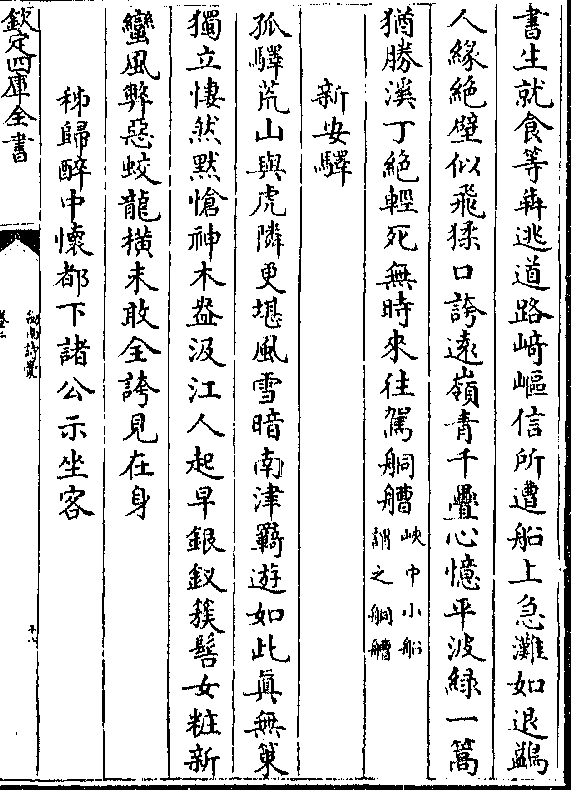 書生就食等犇逃道路﨑嶇信所遭船上急灘如退鷁
人緣絶壁似飛猱口誇逺嶺青千疊心憶平波緑一篙
猶勝溪丁絶輕死無時來往駕舸艚峽中小船謂之舸艚
新安驛
孤驛荒山與虎隣更堪風雪暗南津羈遊如此真無策
獨立悽然黙愴神木盎汲江人起早銀釵簇髻女粧新
蠻風弊惡蛟龍横未敢全誇見在身
秭歸醉中懷都下諸公示坐客
欽定四庫全書
劍南詩稾
卷二